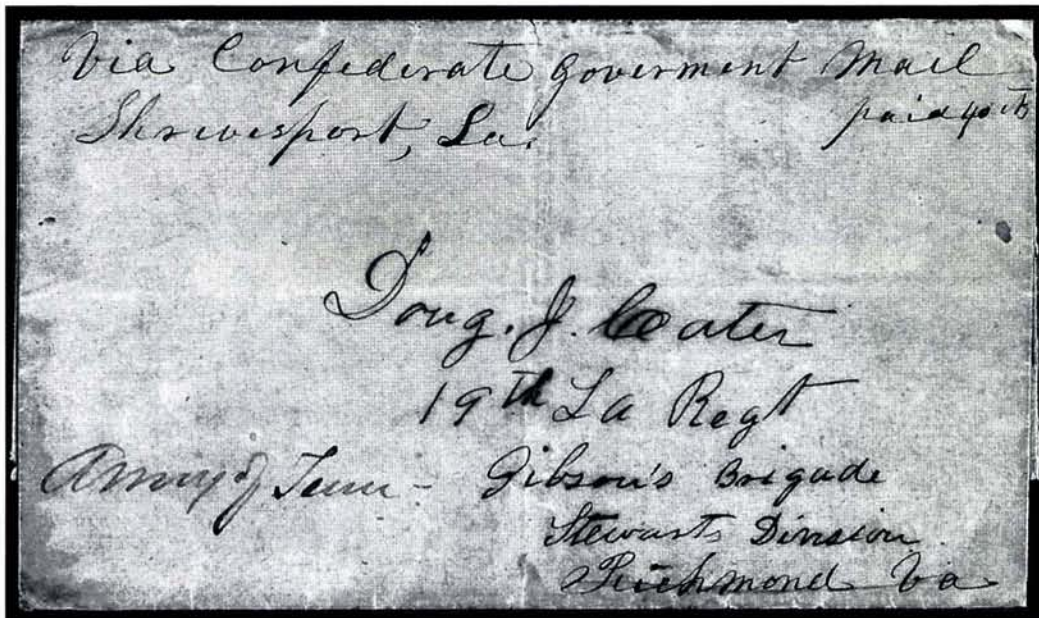 Via Confederate goverment Mail
Shrevesport, La. paid 40 cts
Doug. J. Cater
19th La Regt
Army of Tenn - Gibson's Brigade
Stewarts Division
Richmond Va